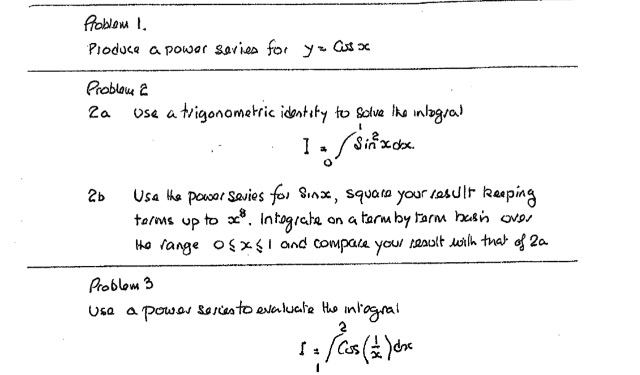 Problem 1.
Produce a power series for y = Cos x
Problem 2
2a Use a trigonometric identity to solve the integral
I = ∫₀¹ Sin²x dx.
2b Use the power series for Sinx, square your result keeping
terms up to x⁸. Integrate on a term by term basis over
the range 0 ≤ x ≤ 1 and compare your result with that of 2a
Problem 3
Use a power series to evaluate the integral
I = ∫₁² Cos(1/x) dx